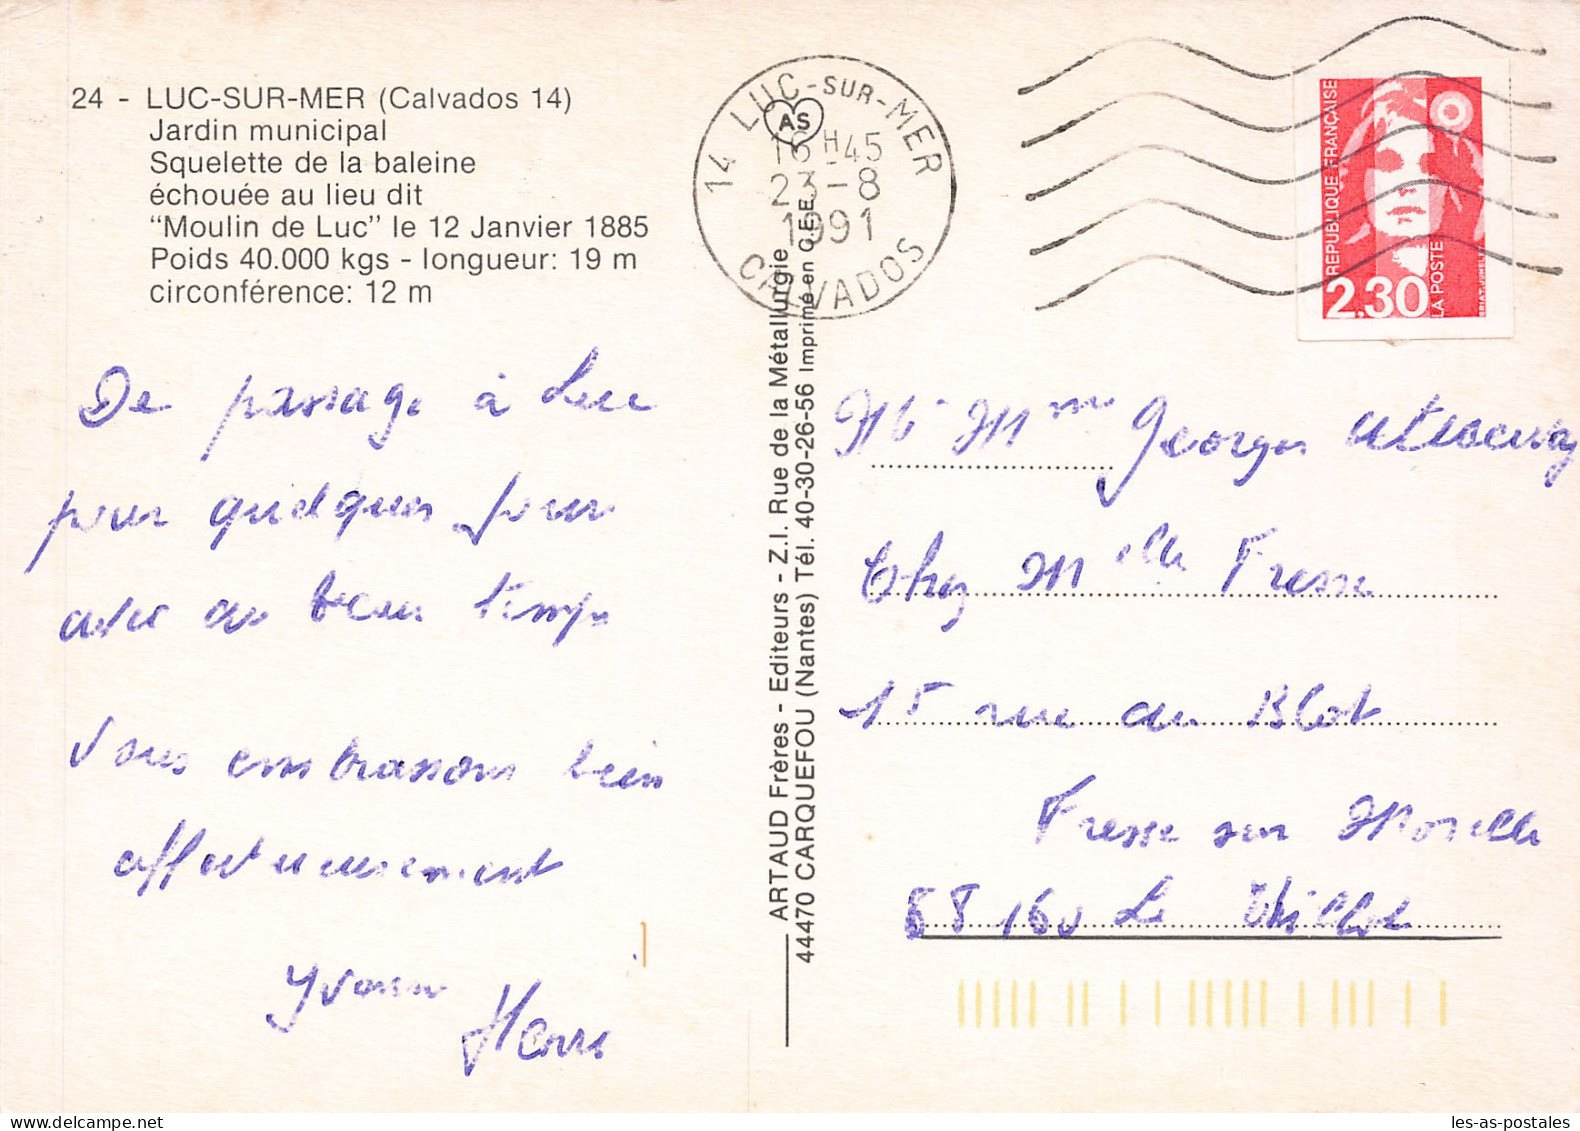 24 - LUC-SUR-MER (Calvados 14)
Jardin municipal
Squelette de la baleine
échouée au lieu dit
"Moulin de Luc" le 12 Janvier 1885
Poids 40.000 kgs - longueur: 19 m
circonférence: 12 m
De passage à Luc
pour quelques jours
avec du beau temps
Vous embrassons bien
affectueusement
Yvonne
Henri
ARTAUD Frères - Editeurs - Z.I. Rue de la Métallurgie
44470 CARQUEFOU (Nantes) Tél. 40-30-26-56 Imprimé en C.E.E.
AS
14 LUC-SUR-MER
16H45
23-8
1991
CALVADOS
REPUBLIQUE FRANÇAISE
2,30
LA POSTE
BRIAT-JUMELET
Mr Mme Georges
Chez Melle Fresse
15 rue du Blot
Fresse sur Moselle
88160 Le Thillot
les-as-postales